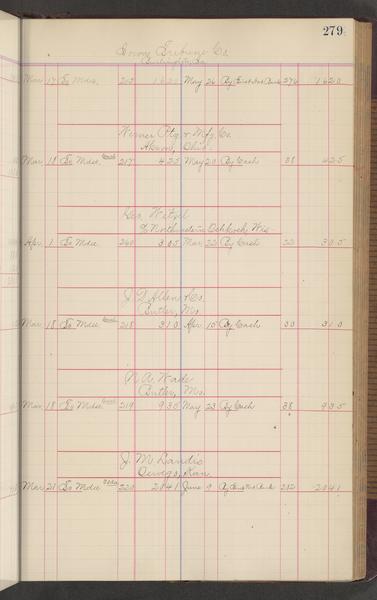 279
Tribune Co.
Mar 17 To Mdse. 202 16.20 May 26 By 276 16.20
Werner Ptg. & Mfg. Co.
Akron, Ohio.
Mar. 18 To Mdse. 217 4.25 May 20 By Cash 38 4.25
Geo. Witzel
% Northwestern Oshkosh, Wis.
Apr. 1 To Mdse 240 3.05 Mar. 22 By Cash 22 3.05
J. D. Allen & Co.
Butler, Mo.
Mar 18 To Mdse 218 3.10 Apr 15 By Cash 30 3.10
N. A. Wade
Butler, Mo.
Mar. 18 To Mdse 219 9.35 May 23 By Cash 38 9.35
J. M. Landis
Oswego, Kan.
Mar 21 To Mdse 220 20.41 June 9 By 282 20.41